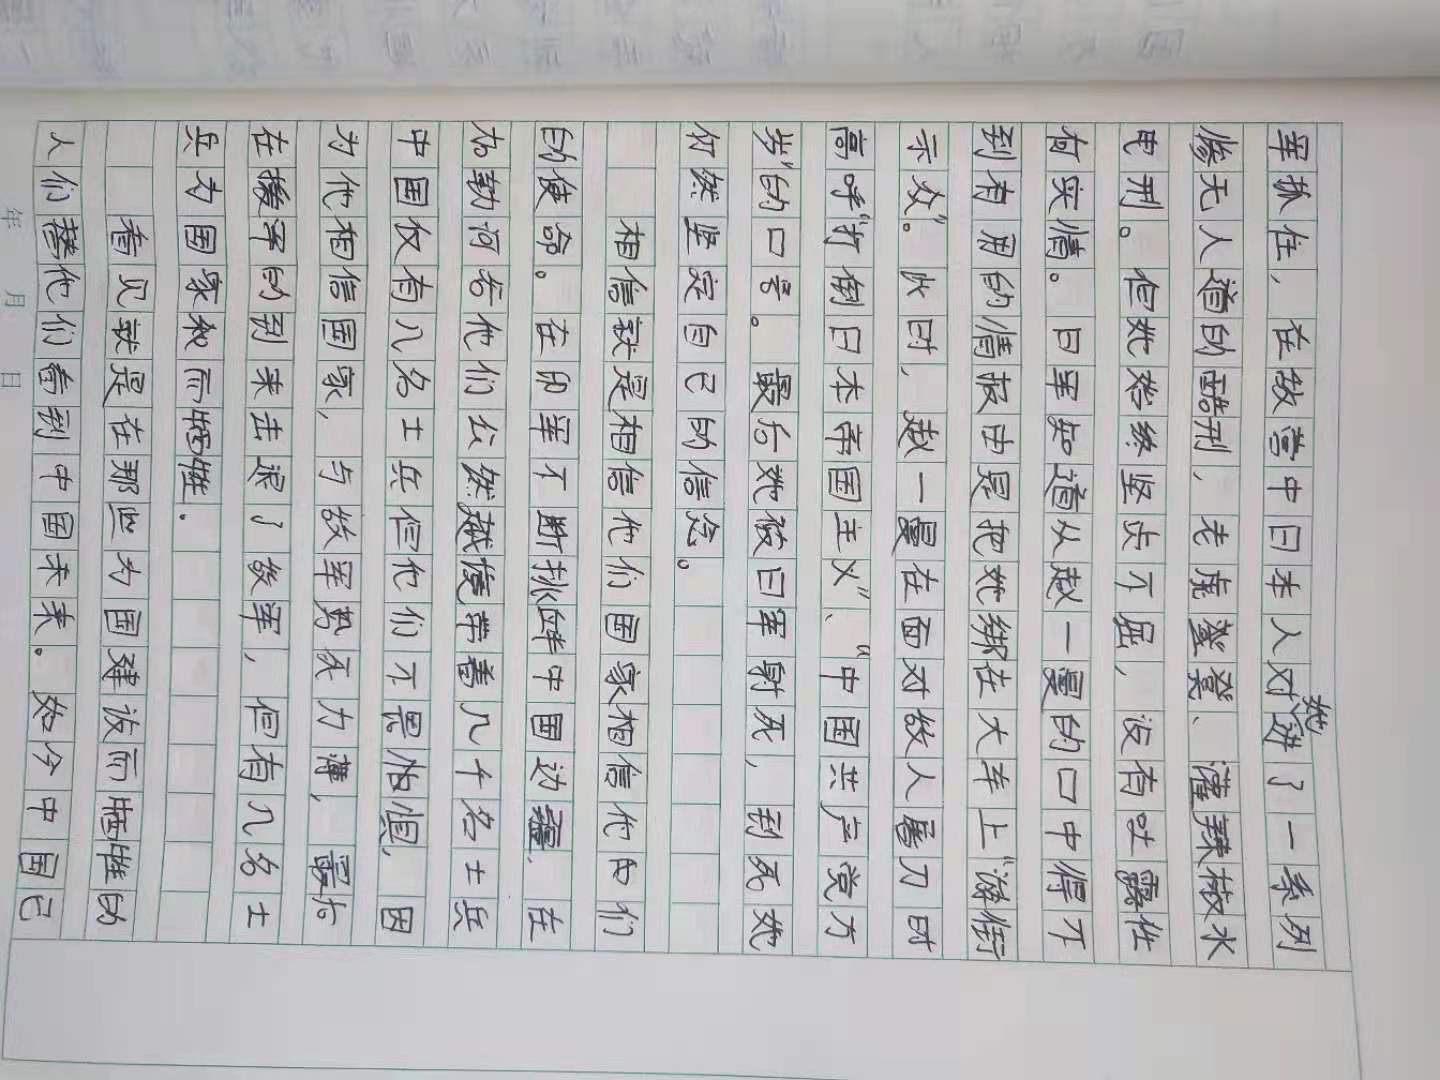 军抓住，在敌营中日本人对她进了一系列
惨无人道的酷刑，老虎凳、灌辣椒水
电刑。但她始终坚贞不屈，没有吐露任
何实情。日军知道从赵一曼的口中得不
到有用的情报由是把她绑在大车上“游街
示众”。此时，赵一曼在面对敌人屠刀时
高呼“打倒日本帝国主义”、“中国共产党万
岁”的口号。最后她被日军射死，到死她
仍然坚定自己的信念。
相信就是相信他们国家相信他们
的使命。在印军不断挑衅中国边疆，在
加勒河谷他们公然越境带着几千名士兵
中国仅有八名士兵但他们不畏怕惧，因
为他相信国家，与敌军势灰力薄，最后
在援军的到来击退了敌军，但有几名士
兵为国家利而牺牲．
看见就是在那些为国建设而牺牲的
人们替他们看到中国未来。如今中国已
年 月 日